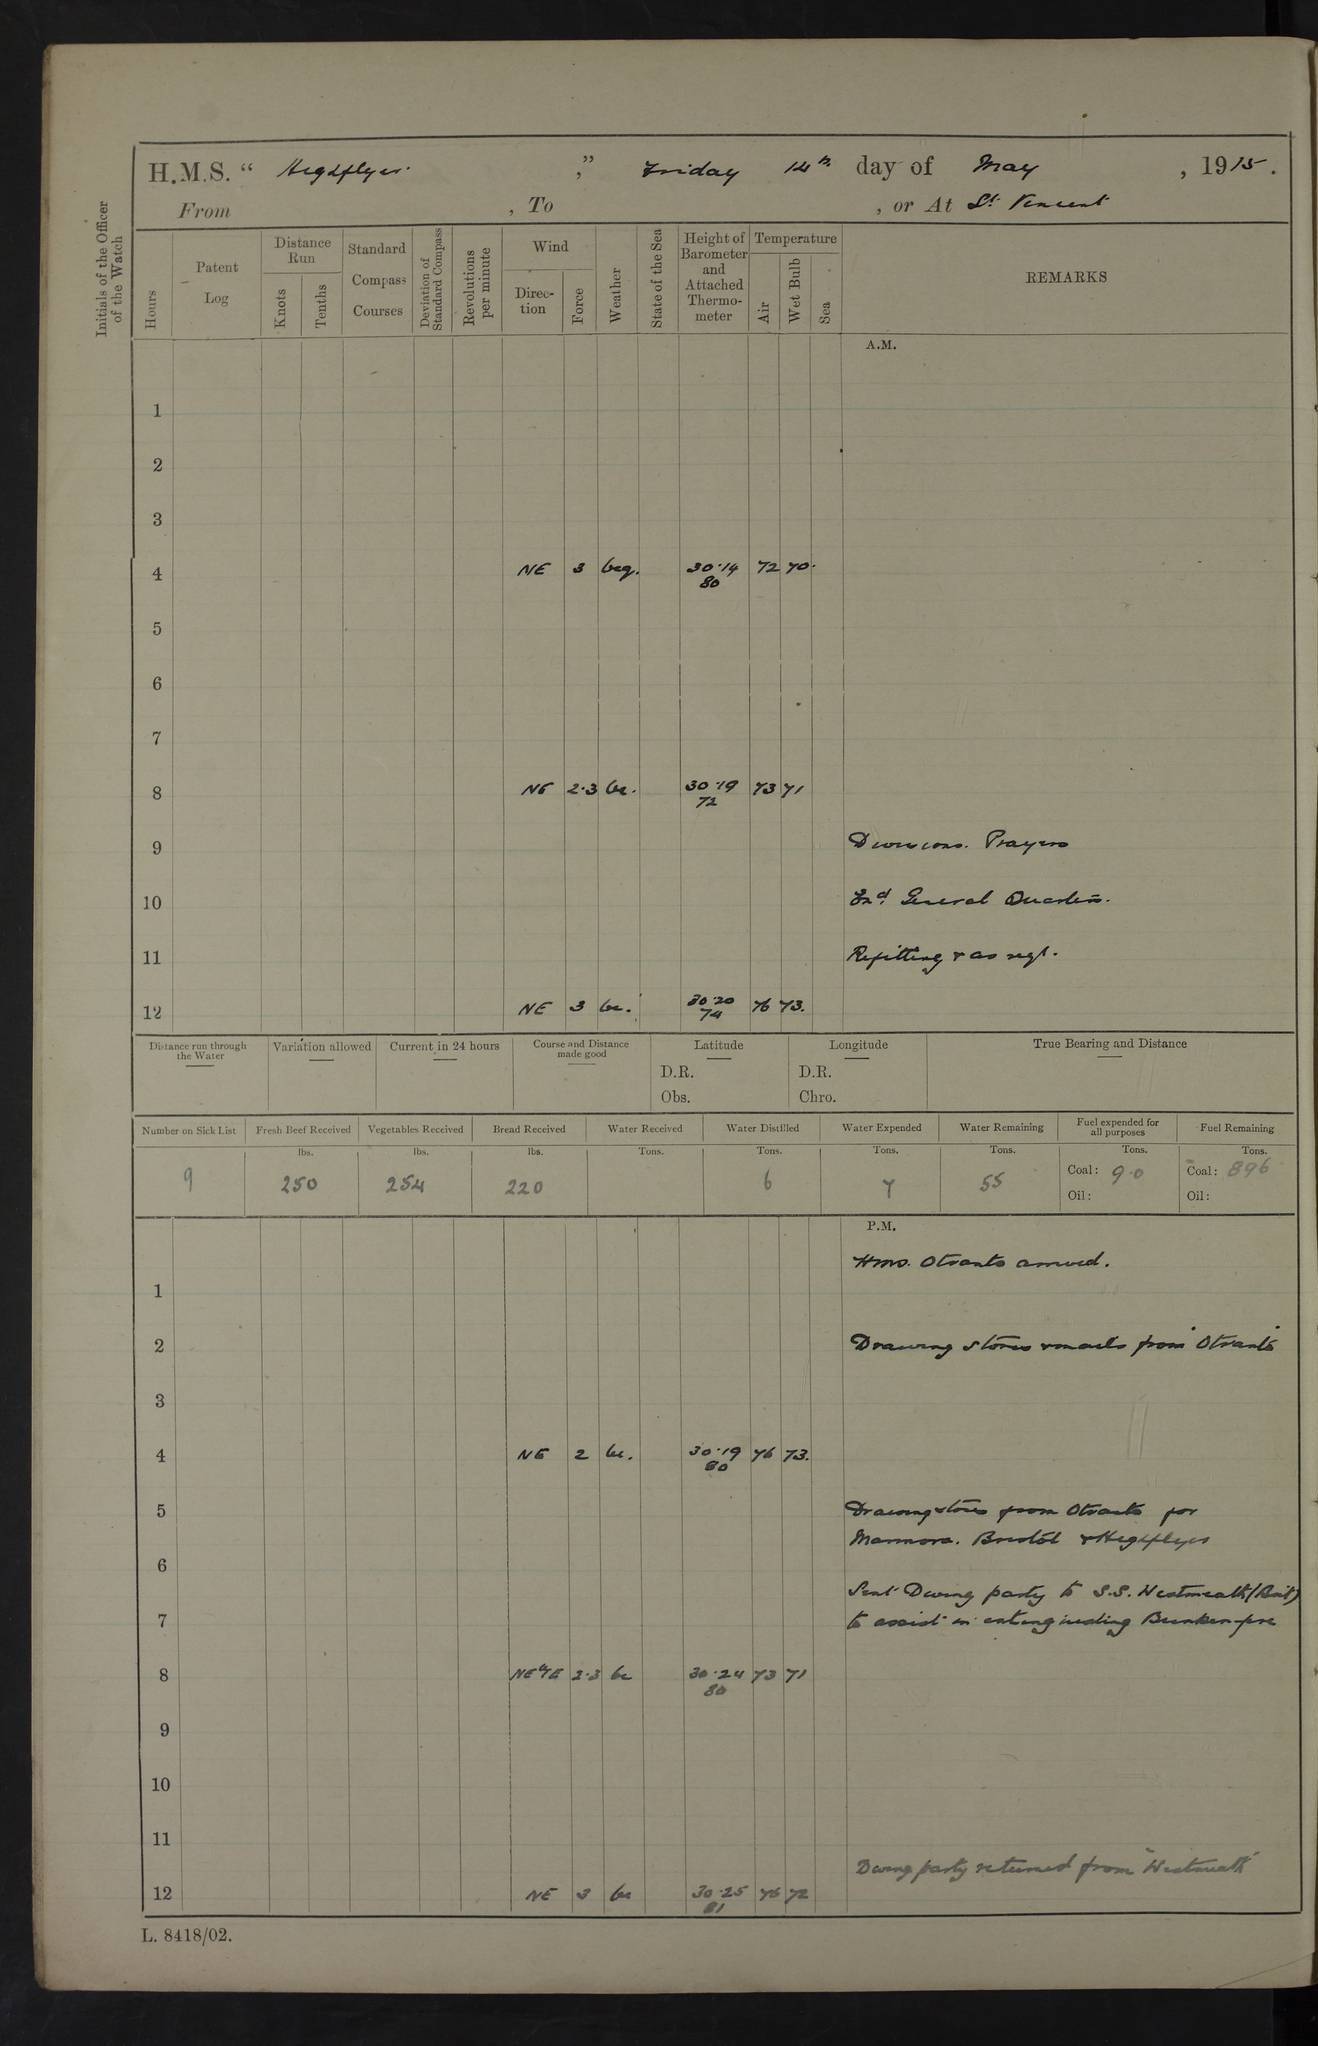 H.M.S. " Highflyer. ", Friday 14th day of May, 1915.
From , To , or At St Vincent
Initials of the Officer of the Watch
Hours
Patent Log
Distance Run
Knots
Tenths
Standard Compass Courses
Deviation of Standard Compass
Revolutions per minute
Wind
Direction
Force
Weather
State of the Sea
Height of Barometer and Attached Thermometer
Temperature
Air
Wet Bulb
Sea
REMARKS
A.M.
1
2
3
4 NE 3 bcq. 30.14 72 70.
80
5
6
7
8 NE 2.3 bc. 30.19 73 71
72
9 Divisions. Prayers
10 Exd General Quarters.
11 Refitting & as reqt.
12 NE 3 bc. 30.20 76 73.
74
Distance run through the Water
Variation allowed
Current in 24 hours
Course and Distance made good
Latitude
D.R.
Obs.
Longitude
D.R.
Chro.
True Bearing and Distance
Number on Sick List Fresh Beef Received Vegetables Received Bread Received Water Received Water Distilled Water Expended Water Remaining Fuel expended for all purposes Fuel Remaining
lbs. lbs. lbs. Tons. Tons. Tons. Tons. Tons. Tons.
9 250 254 220 6 7 55 Coal: 9.0 Coal: 896
Oil: Oil:
P.M.
HMS. Otranto arrived.
1
2 Drawing stores & mails from "Otranto"
3
4 NE 2 bc. 30.19 76 73.
80
5 Drawing stores from Otranto for
Marmora. Bristol & Highflyer
6
Sent Diving party to S.S. Westmeath (Brit)
7 to assist in extinguishing Bunker fire
8 NEbE 2.3 bc 30.24 73 71
80
9
10
11
Diving party returned from "Westmeath"
12 NE 3 bc 30.25 75 72
81
L. 8418/02.